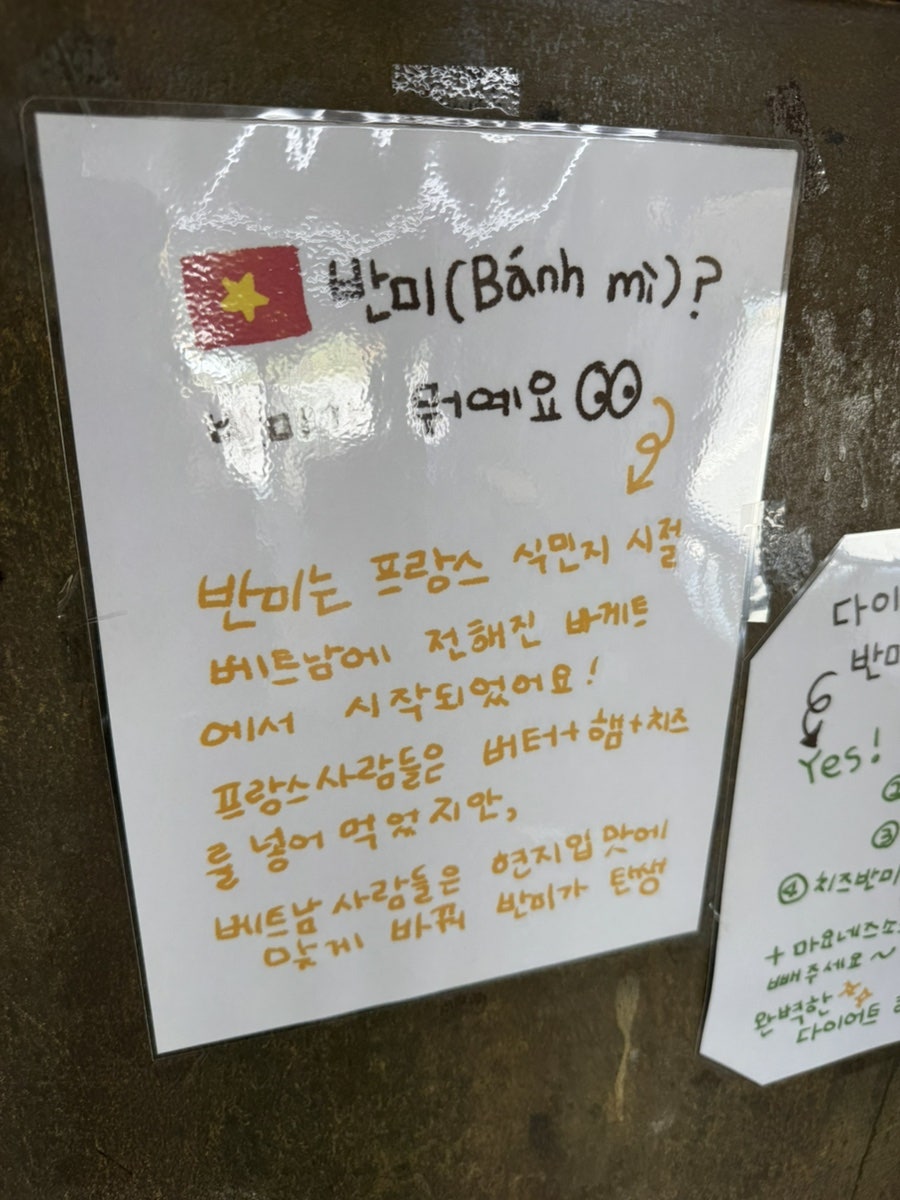 반미(Bánh mì)?
뭐예요
반미는 프랑스 식민지 시절
베트남에 전해진 바게트
에서 시작되었어요!
프랑스사람들은 버터+햄+치즈
를 넣어 먹었지만,
베트남 사람들은 현지입맛에
맞게 바꿔 반미가 탄생
다이
반미
Yes!
②
③
④ 치즈반미
+ 마요네즈소
빼주세요~
완벽한
다이어트